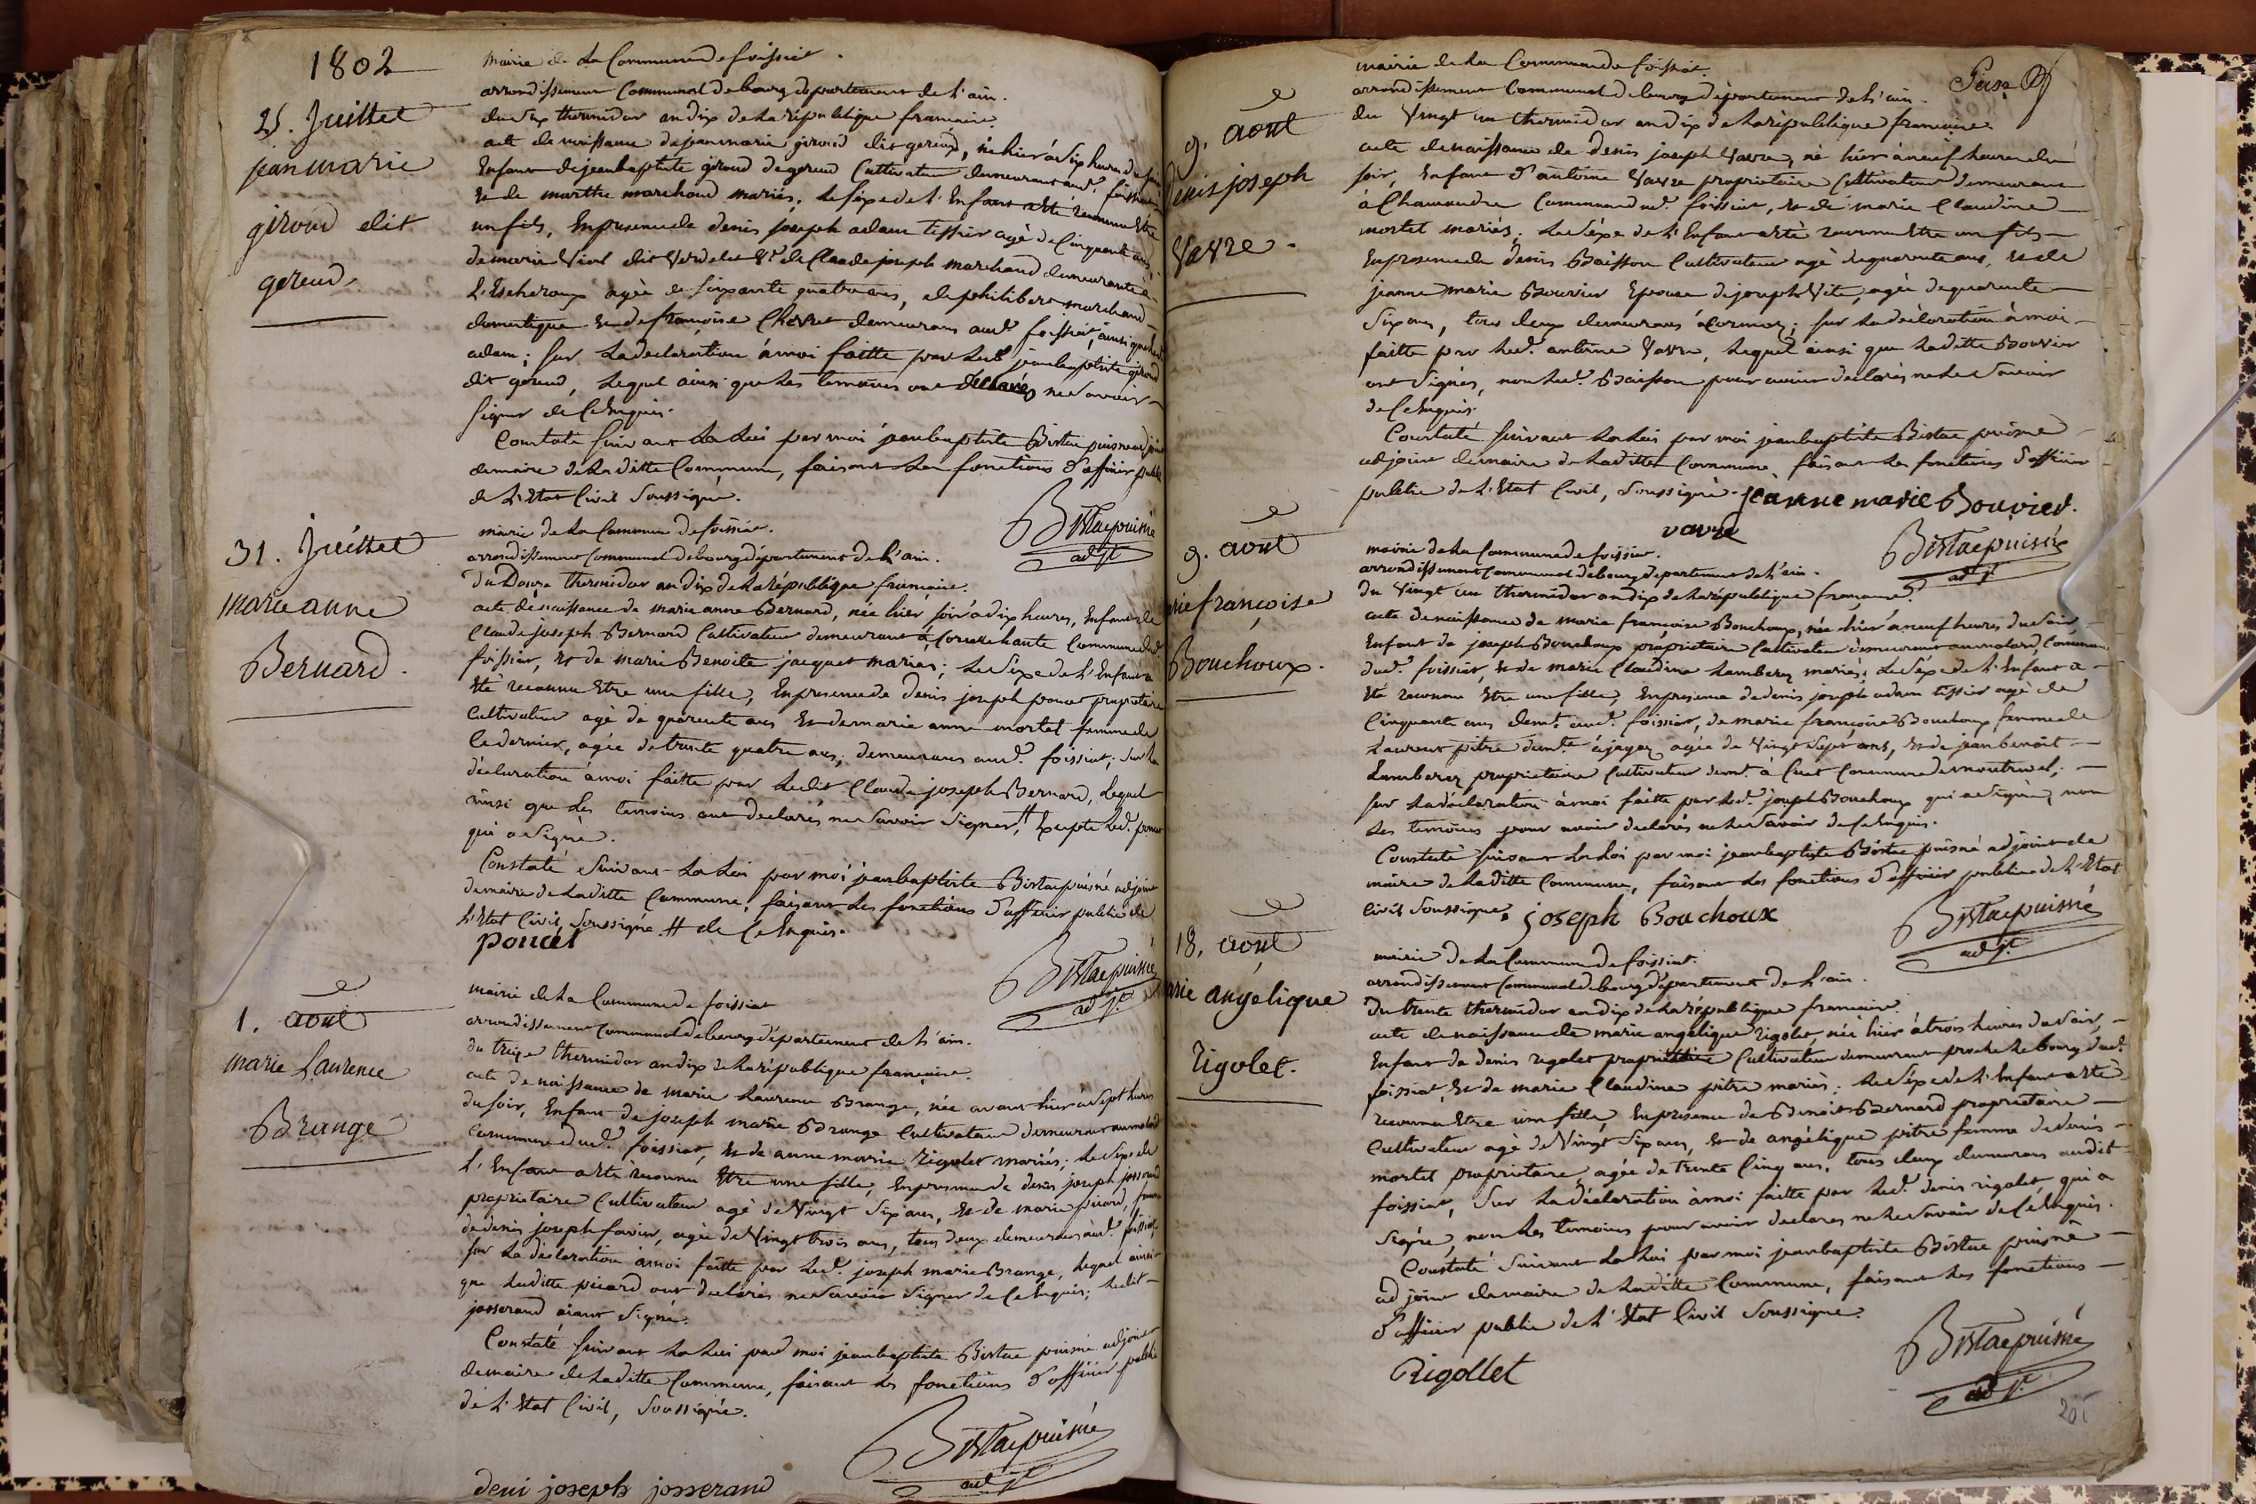 1802
25. Juillet
jean marie
giroud dit
gereud.
mairie de la Commune de foissiat.
arrondissement Communal de bourg departement de l'ain.
du six thermidor an dix de la république francaise.
acte de naissance de jean marie giroud dit gereud, né hier à six heures du
Enfant de jeanbaptiste giroud dit gereud Cultivateur demeurant aud.t foissiat
et de marthe marchand mariés. le séxe de l'Enfant a eté reconnu Etre
un fils, En presence de denis joseph adam tissier agé de Cinquante ans,
de marie Vial dit Verdelet V.e de Claude joseph marchand demeurante à
L'Escheroux agée de soixante quatre ans, de philibert marchand
domestique et de françoise Chevret demeurans aud.t foissiat, ainsi que led.
adam; sur la declaration à moi faitte par led. jeanbaptiste giroud
dit gereud, lequel ainsi que les temoins ont declarés ne savoir
signer de Ce Enquis.
Constaté suivant la Loi par moi jeanbaptiste Bistac puisné adjoint
de maire de la ditte Commune, faisant les fonctions d'officier public
de L'Etat Civil soussigné.
Bistac puisné
adj.t
31. Juillet
marie anne
Bernard.
mairie de la Commune de foissiat.
arrondissement Communal de bourg département de l'ain.
du Douze thermidor an dix de la république française.
acte de naissance de marie anne Bernard, née hier soir à dix heures, Enfant de
Claude joseph Bernard Cultivateur demeurant à Cormechante Commune dud.
foissiat, et de marie Benoite jacquet mariés; le séxe de l'Enfant a
Eté reconnu Etre une fille, En presence de denis joseph poncet proprietaire
Cultivateur agé de quarente ans et de marie anne mortel femme de
Ce dernier, agée de trente quatre ans, demeurans aud.t foissiat; sur la
déclaration à moi faitte par ledit Claude joseph Bernard, lequel
ainsi que les temoins ont declarés ne savoir signer, # Excepté led. poncet
qui a signé.
Constaté suivant la Loi par moi jeanbaptiste Bistac puisné adjoint
de maire de la ditte Commune, faisant les fonctions d'officier public de
L'Etat Civil, soussigné. # de Ce Enquis.
poncet
Bistac puisné
adj.t
1. aout
marie Laurence
Brange
mairie de la Commune de foissiat
arrondissement Communal de bourg département de l'ain.
du treize thermidor an dix de la république française.
acte de naissance de marie Laurence Brange, née avant hier à sept heures
du soir, Enfant de joseph marie Brange Cultivateur demeurant au molard
Commune dud.t foissiat, et de anne marie rigolet mariés. le séxe de
L'Enfant a eté reconnu Etre une fille, En presence de denis joseph josserand
proprietaire Cultivateur agé de Vingt six ans, et de marie picard, femme
de denis joseph favier, agée de Vingt trois ans, tous deux demeurans aud.t foissiat,
sur la déclaration à moi faitte par led. joseph marie Brange, lequel ainsi
que laditte picard ont declarés ne savoir signer de Ce Enquis; ledit
josserand aiant signé.
Constaté suivant la Loi par moi jeanbaptiste Bistac puisné adjoint
de maire de la ditte Commune, faisant les fonctions d'officier public
de l'Etat Civil, soussigné.
Bistac puisné
adj.t
deni joseph josserand
9. aout
denis joseph
Vavre.
mairie de la Commune de foissiat.
arrondissement Communal de bourg département de l'ain.
du Vingt un thermidor an dix de la république francaise.
acte de naissance de denis joseph Vavre, né hier à neuf heures du
soir, Enfant d'antoine Vavre proprietaire Cultivateur demeurant
à Chamandre Commune dud. foissiat, et de marie Claudine
mortel mariés. le séxe de l'Enfant a eté reconnu Etre un fils
En presence de denis Buisson Cultivateur agé de quarente ans, et de
jeanne marie Bouvier Epouse de joseph Vite, agée de quarente
six ans, tous deux demeurans à Cormoz; sur la déclaration à moi
faitte par led. antoine Vavre, lequel ainsi que laditte Bouvier
ont signés, non led. Buisson pour avoir declarés ne le savoir
de Ce Enquis.
Constaté suivant la Loi par moi jeanbaptiste Bistac puisné
adjoint de maire de laditte Commune, faisant les fonctions d'officier
public de l'Etat Civil, soussigné. jeanne marie Bouvier.
vavre
Bistac puisné
adj.t
9. aout
marie françoise
Bouchoux.
mairie de la Commune de foissiat.
arrondissement Communal de bourg departement de l'ain.
du Vingt un thermidor an dix de la république française.
acte de naissance de marie francoise Bouchoux, née hier à neuf heures du soir,
Enfant de joseph Bouchoux propriétaire Cultivateur demeurant au molard, Commune
dud.t foissiat, et de marie Claudine Lamberez mariés; le séxe de l'Enfant a
Eté reconnu Etre une fille, En presence de denis joseph adam tissier agé de
Cinquante ans demt. aud.t foissiat, de marie françoise Bouchoux femme de
Laurent pitre demte. à jayaz agée de Vingt sept ans, et de jean benoit
Lamberez proprietaire Cultivateur demt. à Cuet Commune de montrevel;
sur la déclaration à moi faitte par led.t joseph Bouchoux qui a signé, non
les temoins pour avoir declarés ne le savoir de Ce Enquis.
Constaté suivant la Loi par moi jeanbaptiste Bistac puisné adjoint de
maire de laditte Commune, faisant les fonctions d'officier public de l'Etat
Civil soussigné. joseph Bouchoux
Bistac puisné
adj.t
18. aout
marie angelique
Rigolet.
mairie de la Commune de foissiat.
arrondissement Communal de bourg département de l'ain.
du trente thermidor an dix de la république francaise.
acte de naissance de marie angélique rigolet, née hier à trois heures du soir,
Enfant de denis rigolet propriétaire Cultivateur demeurant proche le bourg dud.
foissiat, et de marie Claudine pitre mariés. le séxe de l'Enfant a eté
reconnu Etre une fille, En presence de Benoit Bernard proprietaire
Cultivateur agé de Vingt six ans, et de angélique pitre femme de denis
mortel proprietaire, agée de trente Cinq ans, tous deux demeurans audit
foissiat, sur la déclaration à moi faitte par led. denis rigolet qui a
signé, non les temoins pour avoir declarés ne le savoir de Ce Enquis.
Constaté suivant la Loi par moi jeanbaptiste Bistac puisné
adjoint de maire de laditte Commune, faisant les fonctions
d'officier public de l'Etat Civil soussigné.
Rigollet
Bistac puisné
adj.t